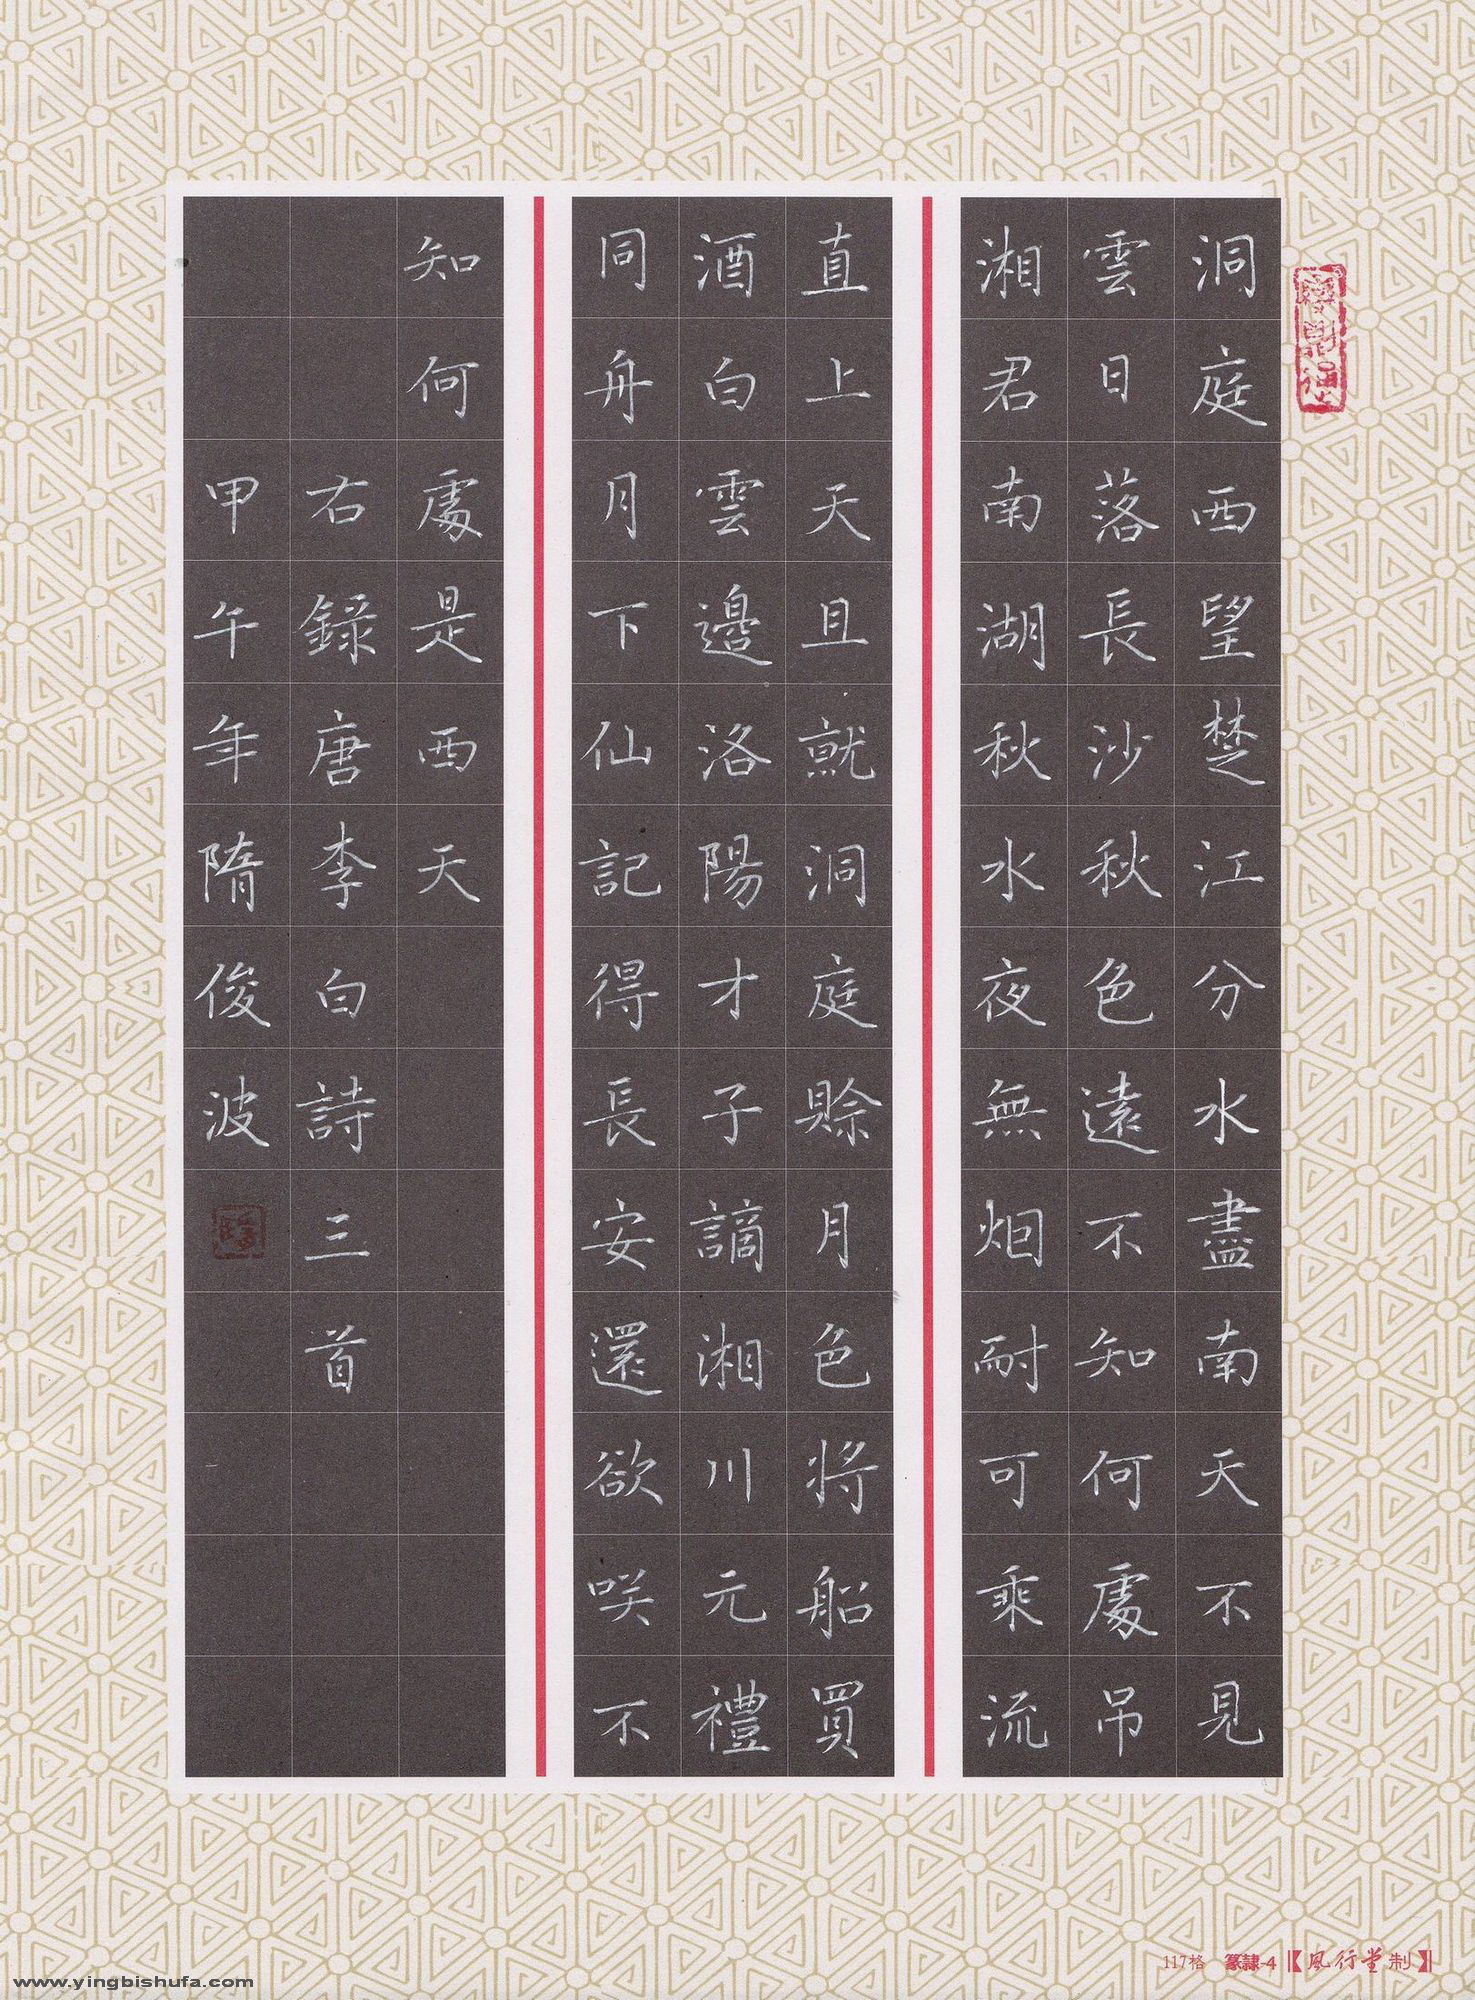 洞庭西望楚江分水盡南天不見
雲日落長沙秋色遠不知何處吊
湘君南湖秋水夜無烟耐可乘流
直上天且就洞庭賒月色将船買
酒白雲邊洛陽才子謫湘川元禮
同舟月下仙記得長安還欲咲不
知何處是西天
右錄唐李白詩三首
甲午年隋俊波
117格 篆隸-4【風行堂制】
www.yingbishufa.com